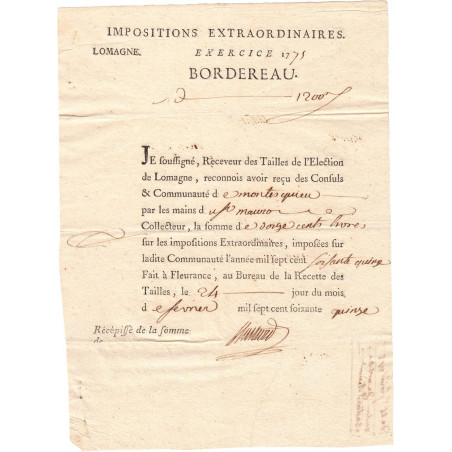 IMPOSITIONS EXTRAORDINAIRES.
LOMAGNE. EXERCICE 1775
BORDEREAU.
1200
JE soussigné, Receveur des Tailles de l'Election
de Lomagne, reconnois avoir reçu des Consuls
& Communauté de montesquieu
par les mains du
Collecteur, la somme de douze cents livres
sur les impositions Extraordinaires, imposées sur
ladite Communauté l'année mil sept cent soixante quinze
Fait à Fleurance, au Bureau de la Recette des
Tailles, le 24 jour du mois,
de fevrier mil sept cent soixante quinze
Récépissé de la somme
de